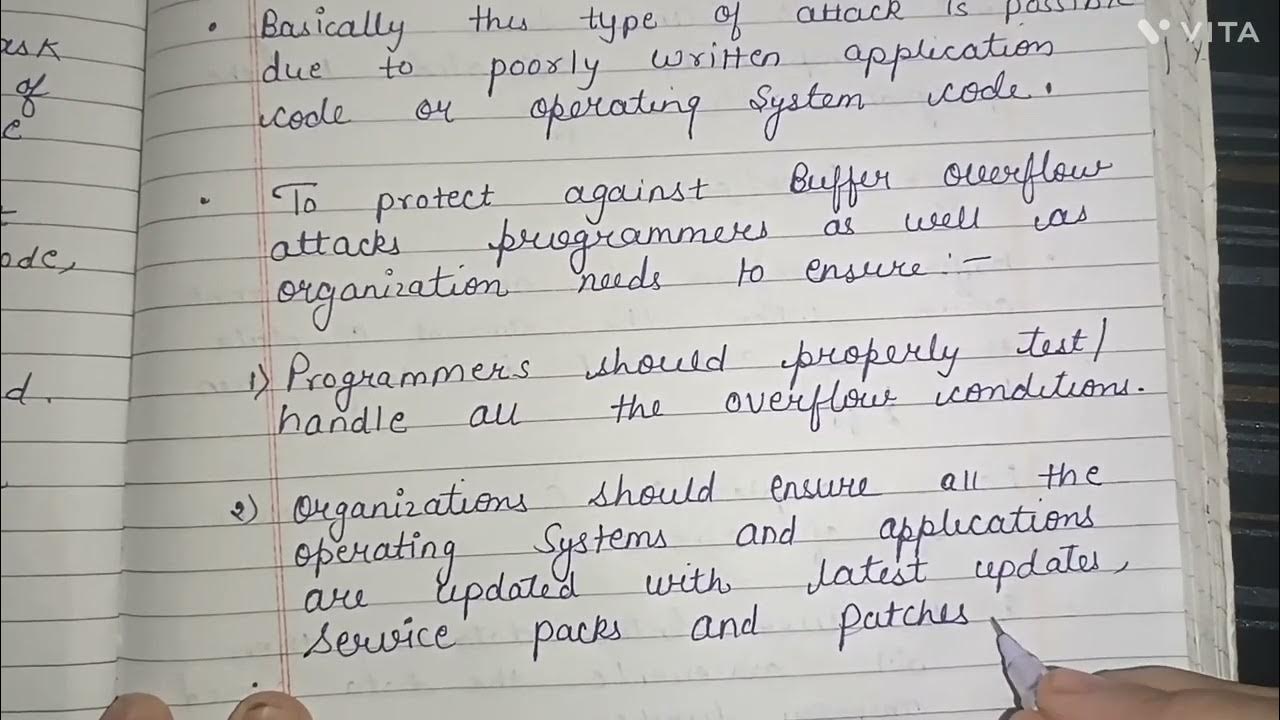 • Basically this type of attack is possible
due to poorly written application
code or operating System code.
• To protect against Buffer overflow
attacks programmers as well as
organization needs to ensure :-
1) Programmers should properly test/
handle all the overflow conditions.
2) Organizations should ensure all the
operating Systems and applications
are updated with latest updates,
Service packs and patches
of
ode,
d.
VITA